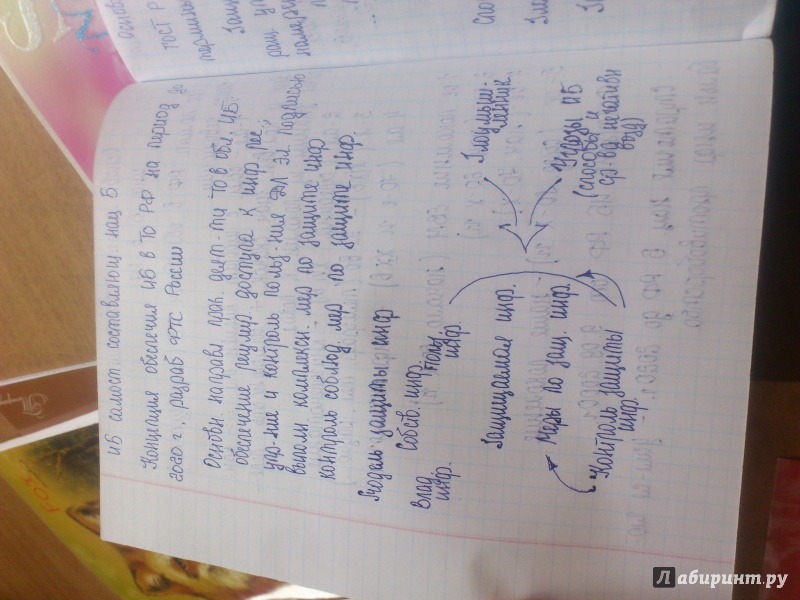 ИБ самост. составляющ нац Б
Концепция обеспечения ИБ в ТО РФ на период до
2020 г., разраб ФТС России
Основн. направл. прак. деят-ти ТО в обл. ИБ.
обеспечение регулир. доступа к инфр. рес.;
упр-ние и контроль польз-ния ЭЦП Эл подписью
выполн комплексн. мер по защите инф
контроль соблюд. мер по защите инф.
Модель защиты инф
Влад инф.
Собств. инф.
Польз инф.
Злоумыш-
ленник
Защищаемая инф.
Угрозы ИБ
(способы и
ср-ва негативн
возд)
Меры по защ. инф.
Контроль защиты
инф.
Основ
ГОСТ Р
Защи
намерен
Лабиринт.ру